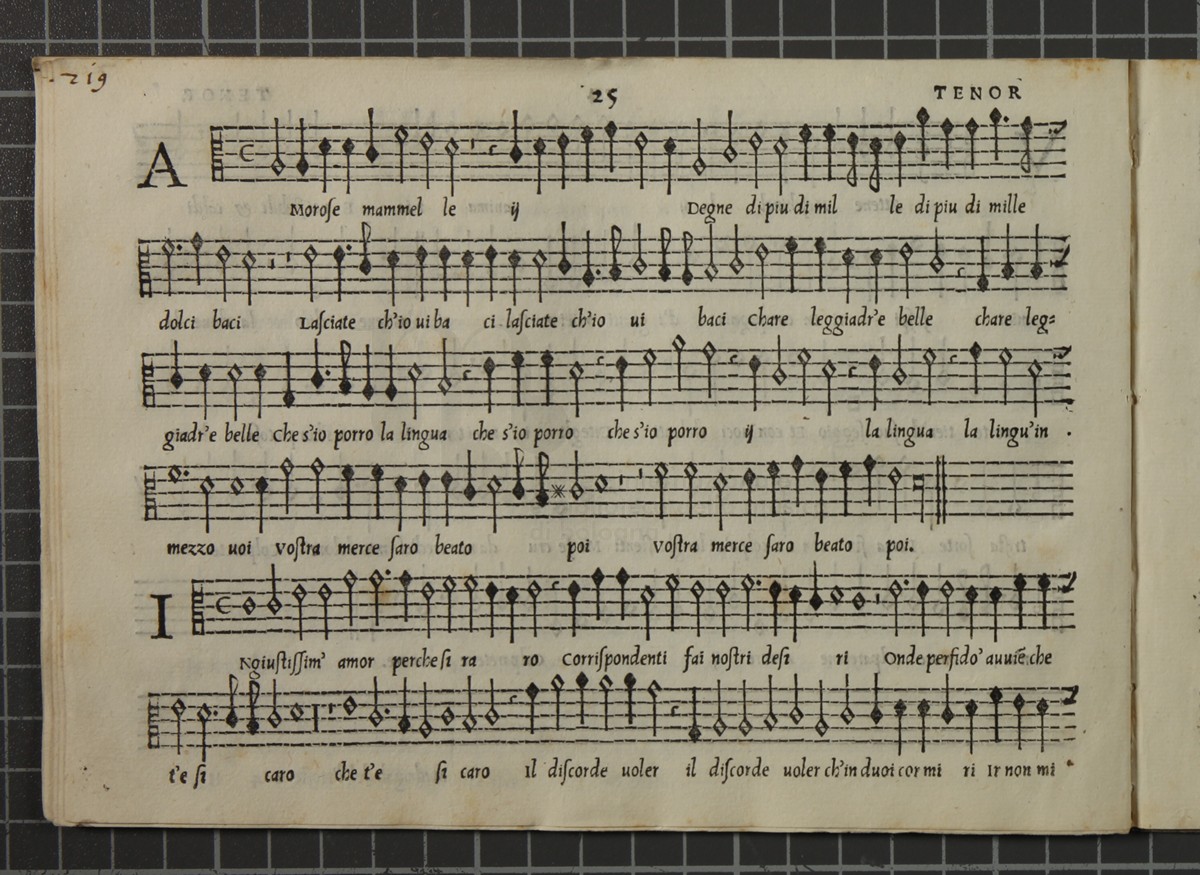 219
25 TENOR
AMoroſe mammel le ij Degne di piu di mil le di piu di mille
dolci baci Laſciate ch'io ui ba ci laſciate ch'io ui baci Chare leggiadr'e belle chare leg=
giadr'e belle Che s'io porro la lingua che s'io porro che s'io porro ij la lingua la lingu'in
mezzo uoi voſtra merce ſaro beato poi voſtra merce ſaro beato poi.
INgiuſtiſſim' amor perche ſi ra ro Corriſpondenti fai noſtri deſi ri Onde perfido' auuiẽ che
t'e ſi caro che t'e ſi caro Il diſcorde uoler il diſcorde uoler ch'in duoi cor mi ri Ir non mi